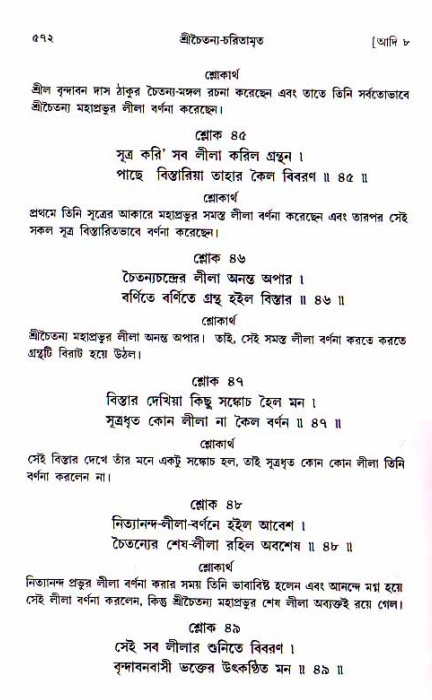 ৫৭২ শ্রীচৈতন্য-চরিতামৃত [আদি ৮
শ্লোকার্থ
শ্রীল বৃন্দাবন দাস ঠাকুর চৈতন্য-মঙ্গল রচনা করেছেন এবং তাতে তিনি সর্বতোভাবে
শ্রীচৈতন্য মহাপ্রভুর লীলা বর্ণনা করেছেন।
শ্লোক ৪৫
সূত্র করি' সব লীলা করিল গ্রন্থন ।
পাছে বিস্তারিয়া তাহার কৈল বিবরণ ॥ ৪৫ ॥
শ্লোকার্থ
প্রথমে তিনি সূত্রের আকারে মহাপ্রভুর সমস্ত লীলা বর্ণনা করেছেন এবং তারপর সেই
সকল সূত্র বিস্তারিতভাবে বর্ণনা করেছেন।
শ্লোক ৪৬
চৈতন্যচন্দ্রের লীলা অনন্ত অপার ।
বর্ণিতে বর্ণিতে গ্রন্থ হইল বিস্তার ॥ ৪৬ ॥
শ্লোকার্থ
শ্রীচৈতন্য মহাপ্রভুর লীলা অনন্ত অপার। তাই, সেই সমস্ত লীলা বর্ণনা করতে করতে
গ্রন্থটি বিরাট হয়ে উঠল।
শ্লোক ৪৭
বিস্তার দেখিয়া কিছু সঙ্কোচ হৈল মন ।
সূত্রধৃত কোন লীলা না কৈল বর্ণন ॥ ৪৭ ॥
শ্লোকার্থ
সেই বিস্তার দেখে তাঁর মনে একটু সঙ্কোচ হল, তাই সূত্রধৃত কোন কোন লীলা তিনি
বর্ণনা করলেন না।
শ্লোক ৪৮
নিত্যানন্দ-লীলা-বর্ণনে হইল আবেশ ।
চৈতন্যের শেষ-লীলা রহিল অবশেষ ॥ ৪৮ ॥
শ্লোকার্থ
নিত্যানন্দ প্রভুর লীলা বর্ণনা করার সময় তিনি ভাবাবিষ্ট হলেন এবং আনন্দে মগ্ন হয়ে
সেই লীলা বর্ণনা করলেন, কিন্তু শ্রীচৈতন্য মহাপ্রভুর শেষ লীলা অব্যক্তই রয়ে গেল।
শ্লোক ৪৯
সেই সব লীলার শুনিতে বিবরণ ।
বৃন্দাবনবাসী ভক্তের উৎকণ্ঠিত মন ॥ ৪৯ ॥